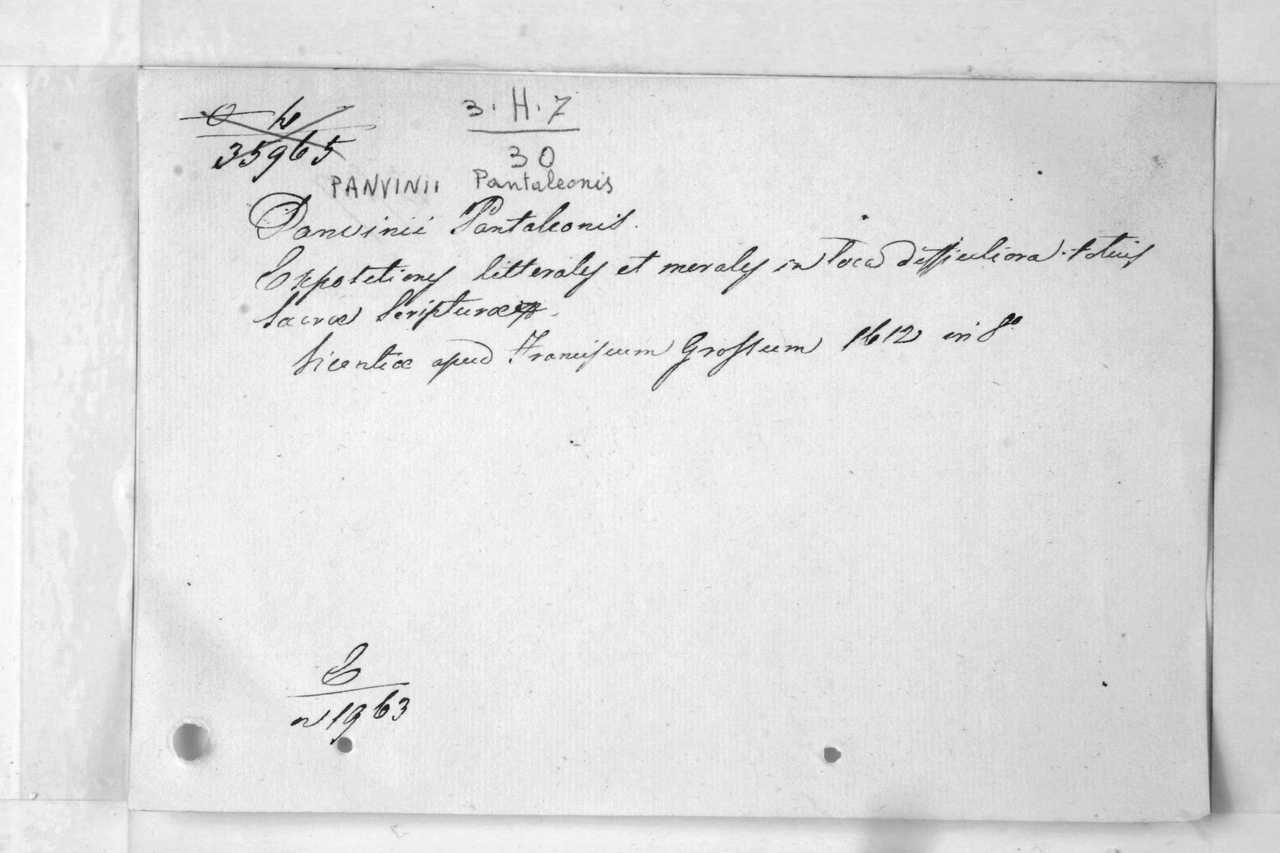 35965
3. H. 7
30
PANVINII Pantaleonis
Panvinii Pantaleonis.
Expositiones litterales et morales in loca difficiliora totius
Sacræ Scripturæ.
Vicentiæ apud Franciscum Grossum 1612 in 8º
n 1963